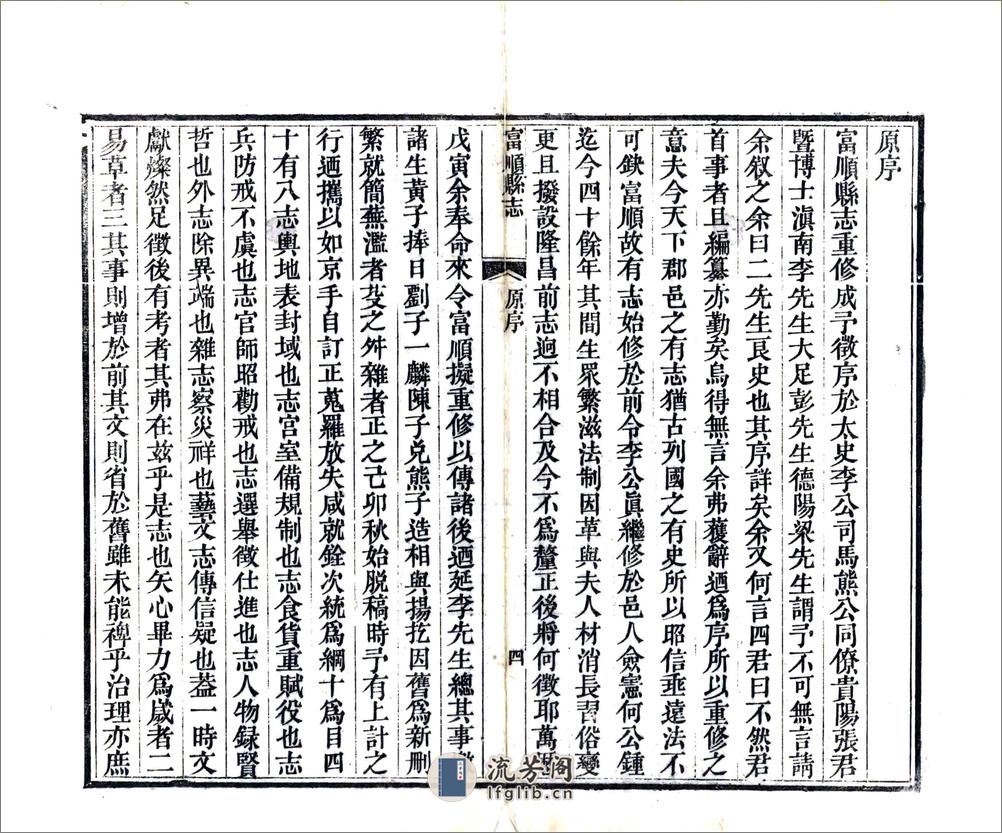 原序
富順縣志重修成予徵序於太史李公司馬熊公同僚貴陽張君
暨博士滇南李先生大足彭先生德陽梁先生謂予不可無言請
余叙之余曰二先生良史也其序詳矣余又何言四君曰不然君
首事者且編纂亦勤矣烏得無言余弗獲辭迺爲序所以重修之
意夫今天下郡邑之有志猶古列國之有史所以昭信垂遠法不
可缺富順故有志始修於前令李公眞繼修於邑人僉憲何公鍾
迄今四十餘年其間生眾繁滋法制因革與夫人材消長習俗變
更且撥設隆昌前志逈不相合及今不爲釐正後將何徵耶萬
富順縣志
原序
四
戊寅余奉命來令富順擬重修以傳諸後迺延李先生總其事
諸生黃子捧日劉子一麟陳子兑熊子造相與揚扢因舊爲新刪
繁就簡蕪濫者芟之舛雜者正之己卯秋始脱稿時予有上計之
行迺攜以如京手自訂正蒐羅放失咸就銓次統爲綱十爲目四
十有八志輿地表封域也志宫室備規制也志食貨重賦役也志
兵防戒不虞也志官師昭勸戒也志選舉徵仕進也志人物録賢
哲也外志除異端也雜志察災祥也藝文志傳信疑也葢一時文
獻燦然足徵後有考者其弗在茲乎是志也矢心畢力爲歲者二
易草者三其事則增於前其文則省於舊雖未能禆乎治理亦庶
流芳阁
lfglib.cn